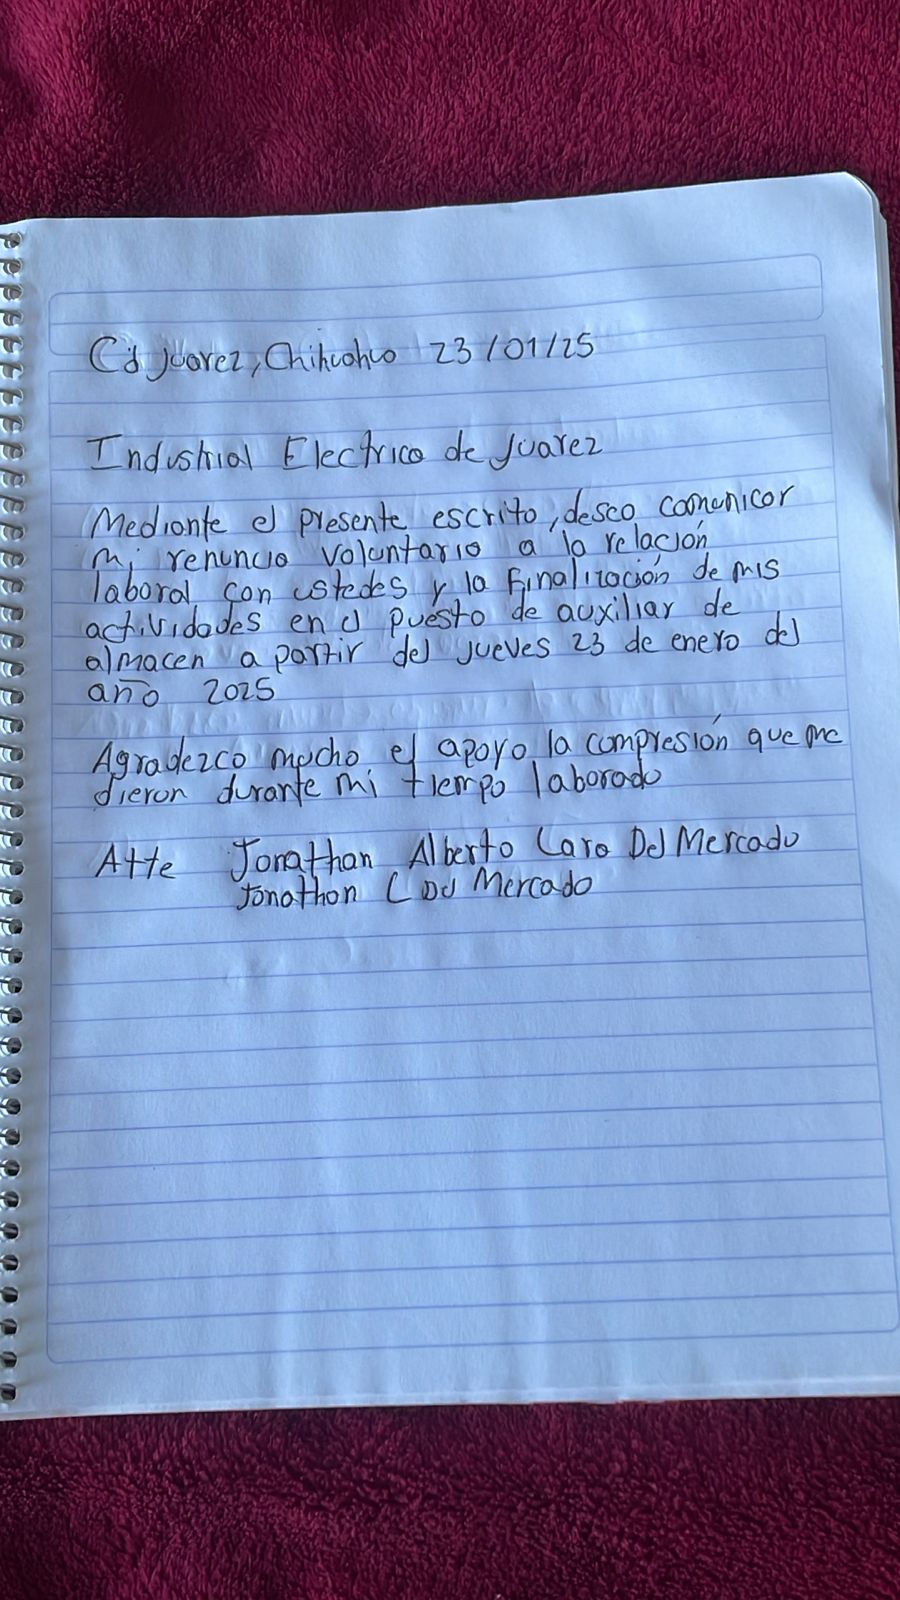 Cd Juarez, Chihuahua 23/01/25
Industrial Electrica de Juarez
Mediante el presente escrito, deseo comunicar
mi renuncia voluntaria a la relación
laboral con ustedes y la finalización de mis
actividades en el puesto de auxiliar de
almacen a partir del jueves 23 de enero del
año 2025
Agradezco mucho el apoyo la compresión que me
dieron durante mi tiempo laborado
Atte Jonathan Alberto Caro Del Mercado
Jonathan C Del Mercado